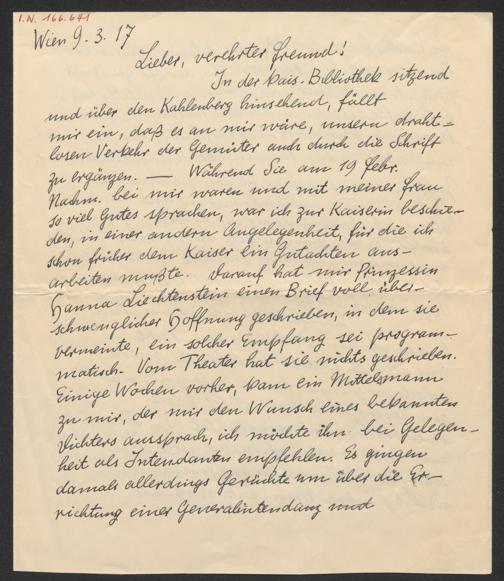 I.N. 166.641
Wien 9. 3. 17
Lieber, verehrter Freund!
In der kais. Bibliothek sitzend
und über den Kahlenberg hinsehend, fällt
mir ein, daß es an mir wäre, unsern draht-
losen Verkehr der Gemüter auch durch die Schrift
zu ergänzen. — Während Sie am 19 Febr.
Nachm. bei mir waren und mit meiner Frau
so viel Gutes sprachen, war ich zur Kaiserin beschie-
den, in einer andern Angelegenheit, für die ich
schon früher dem Kaiser ein Gutachten aus-
arbeiten mußte. Darauf hat mir Prinzessin
Hanna Liechtenstein einen Brief voll über-
schwenglicher Hoffnung geschrieben, in dem sie
vermeinte, ein solcher Empfang sei program-
matisch. Vom Theater hat sie nichts geschrieben.
Einige Wochen vorher, kam ein Mittelsmann
zu mir, der mir den Wunsch eines bekannten
Dichters aussprach, ich möchte ihn bei Gelegen-
heit als Intendanten empfehlen. Es gingen
damals allerdings Gerüchte um über die Er-
richtung einer Generalintendanz und